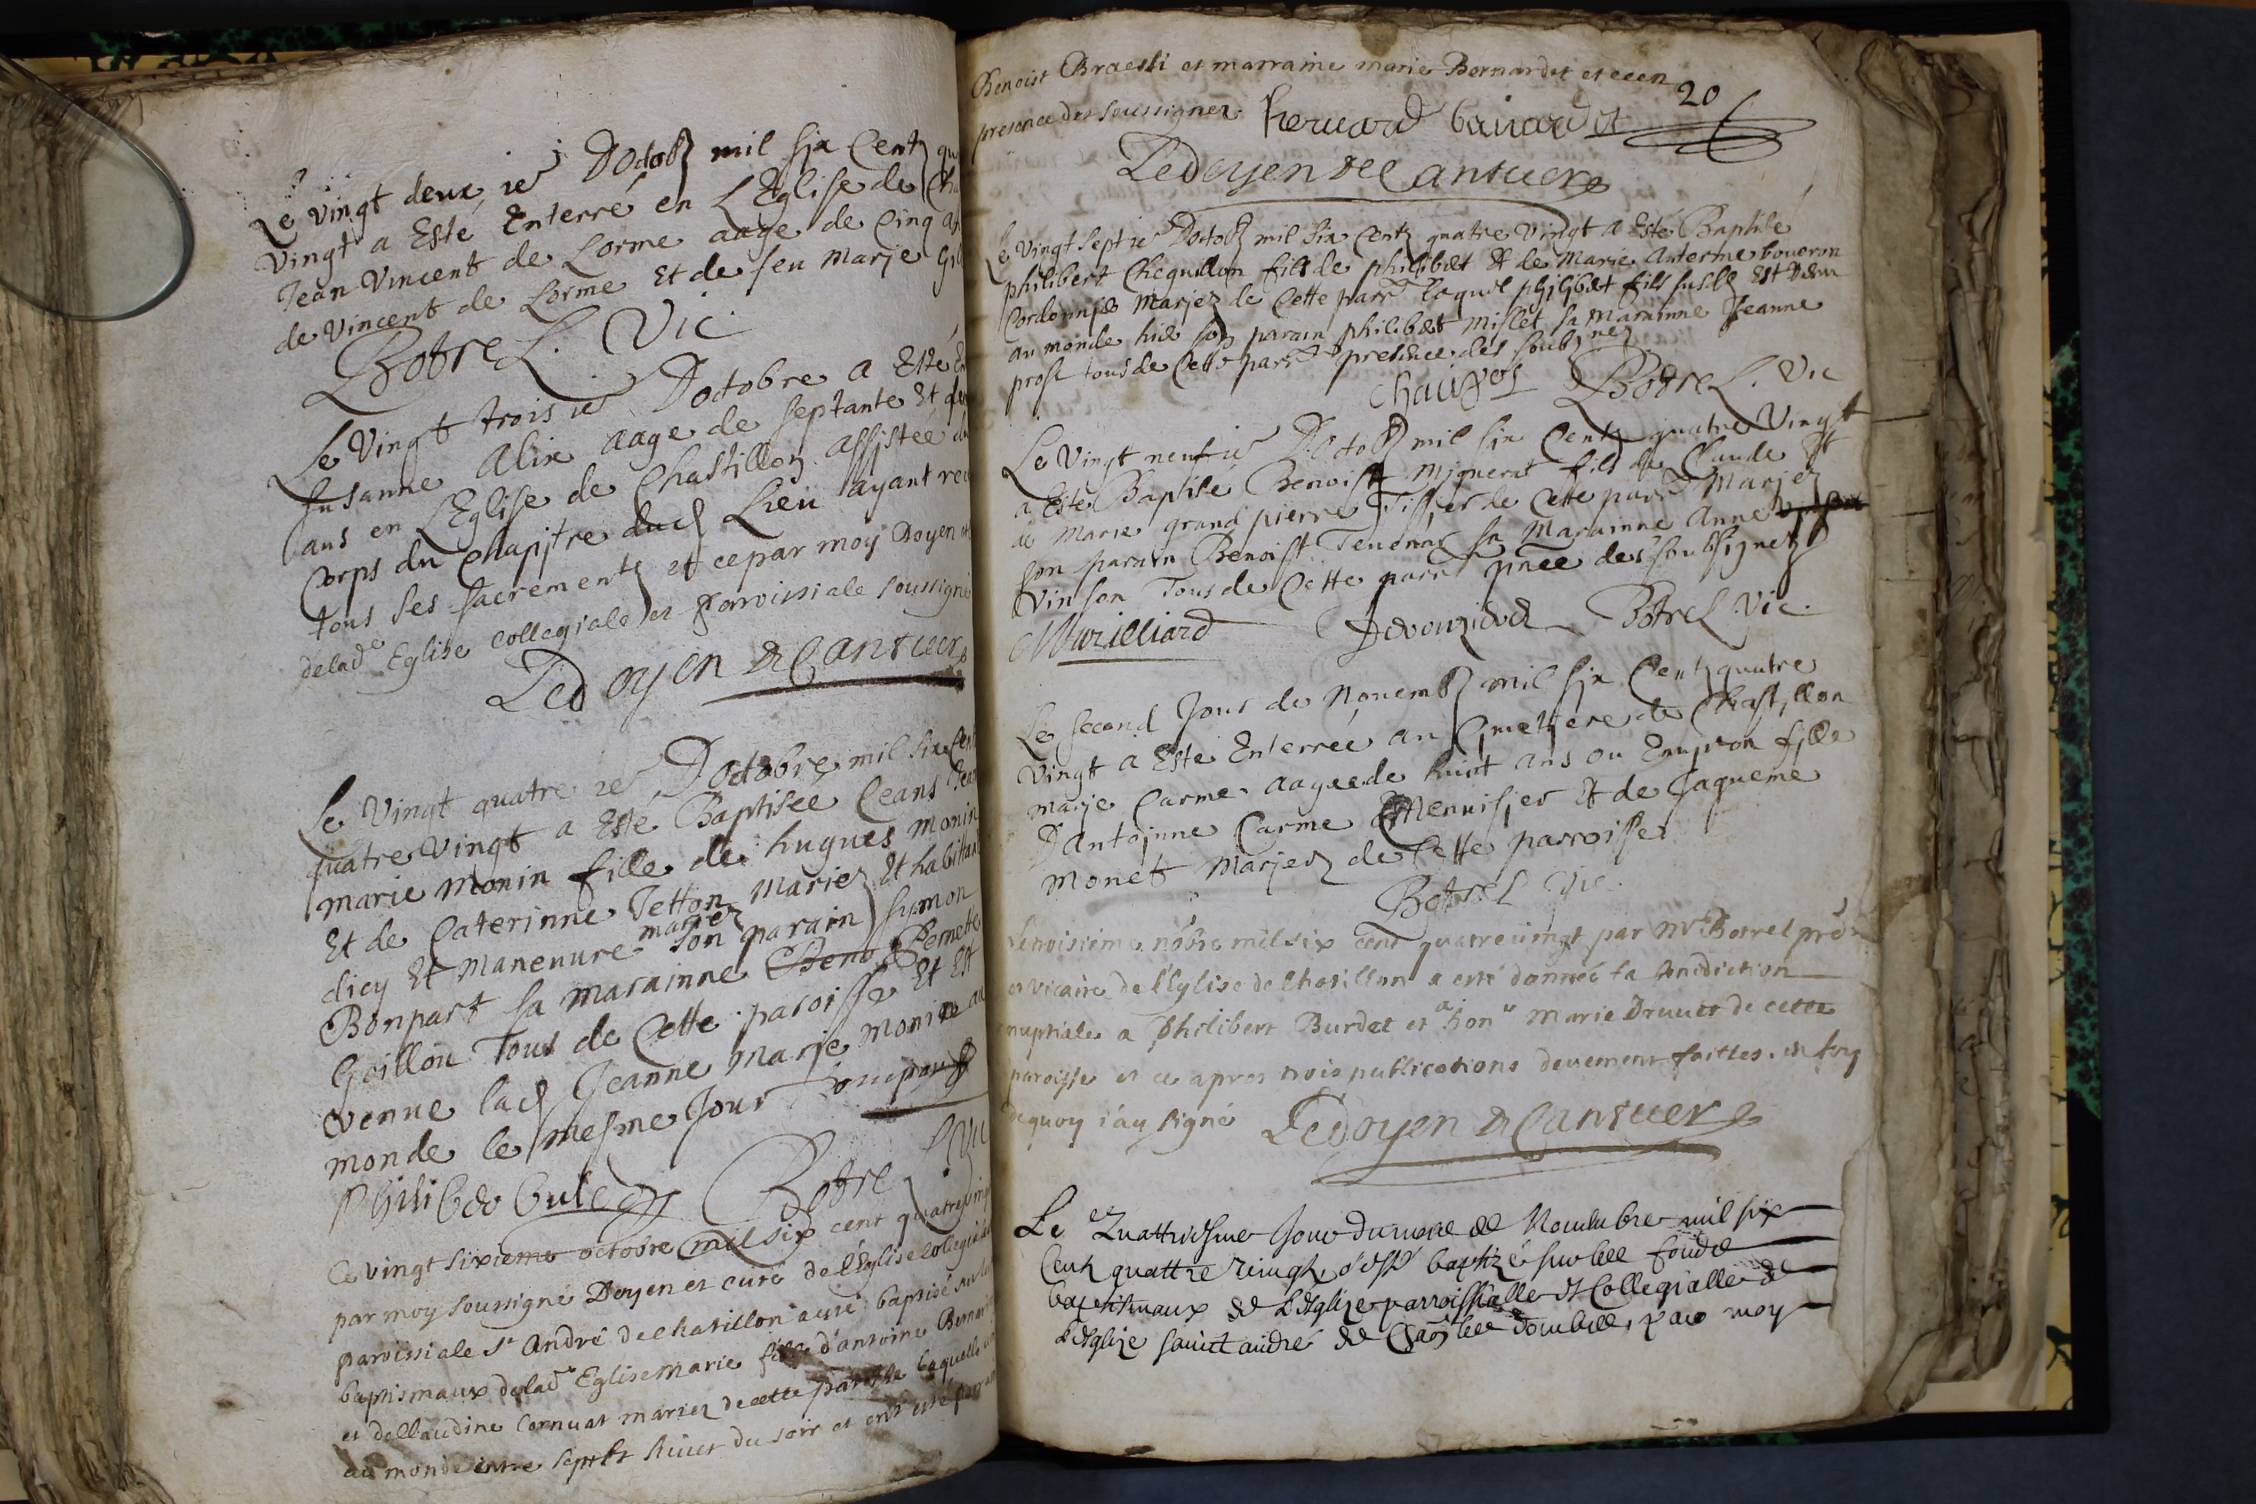 Le vingt deux ie Doctob mil six Centz qu
vingt a Esté Enterré en LEglise de Cha
Jean Vincent de Lorme aage de Cinq a
de Vincent de Lorme Et de feu Marje
Botrel. Vic
Le Vingt trois ie Doctobre a Esté
Susanne Alix aage de septante Et
ans en LEglise de Chastillon assistée du
Corps du Chapjtre dud Lieu ayant
tous ses sacrementz et ce par moy Doyen
delade Eglise collegiale et paroissiale soussigné
Ledoyen de Cantuer
Le Vingt quatre ie Doctobre mil six Cent
quatre Vingt a Esté Baptisée Ceans Jea
marie Monin fille de hugues Monin
Et de Caterinne Tetton Mariez Et habitta
dicy Et Manenure mariez son parain symon
Bonpart sa Marainne Pernette
Goillon Tous de Cette paroisse Et Est
venue lad Jeanne Marje Monin au
monde le mesme Jour Bompart
Botrel Vic
Ce vingt sixieme octobre mil six cent quatre vingt
par moy soussigné Doyen et curé de l'Eglise collegia
paroissiale St André de chatillon a esté baptisé
baptismaux de lade Eglise Marie fille d'antoine Bernar
et de Claudine Cornuat mariez de cette paroisse laquelle
au monde entre sept et huict du soir et ont esté parrain
20
Benoist et marraine marie Bernardet et ce en
presence des soussignez
Ledoyen de Cantuer
Le Vingt sept ie Doctob mil six Centz quatre Vingt a Esté Baptisé
philibert Chequillon fils de philibert Et de Marie Boucron
Cordonnjer Marjez de Cette parr laquel philibert fils Est Venu
au monde hier son parain philibert Mislet sa Marainne Jeanne
prost tous de Cette parr presence des soubznez
Botrel. Vic
Le Vingt neuf ie Doctob mil six Centz quatre Vingt
a Esté Baptisé Benoist Mignerat fils de Claude Et
de Marie grand pierre Tissier de Cette parr Marjez
son parain Benoist Tendnas sa Marainne Anne
Vinson Tous de Cette parr pnce des soubsignez
Murilliard Botrel Vic.
Le second Jour de Nouemb mil six Centz quatre
Vingt a Esté Enterrée au Cymetiere de Chastillon
Marje Carme aagee de huict ans ou Enujron fille
D'antojnne Carme Menuisjer Et de Jaqueme
Monet Marjez de Cette parroisse
Botrel Vic.
Le troisieme nobre mil six cent quatre vingt par Mr Botrel
et vicaire de l'Eglise de Chatillon a esté donnée la benediction
nuptiale a Philibert Burdet et a hon Marie Druuet de cette
paroisse et ce apres trois publications deuement faittes. en foy
de quoy i'ay signé Ledoyen de Cantuer
Le Quattriesme Jour du mois de Nouembre mil six
Centz quattre vingtz a esté baptizé sur les fondz
baptismaux de l'Esglize parroissialle Et Collegialle de
l'Esglize sainct André de les dombes, par moy